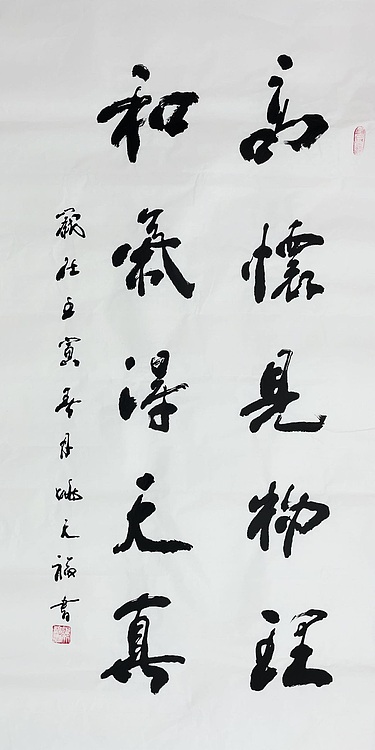 高懷見物理
和氣得天真
歲在壬寅春月姚元福書